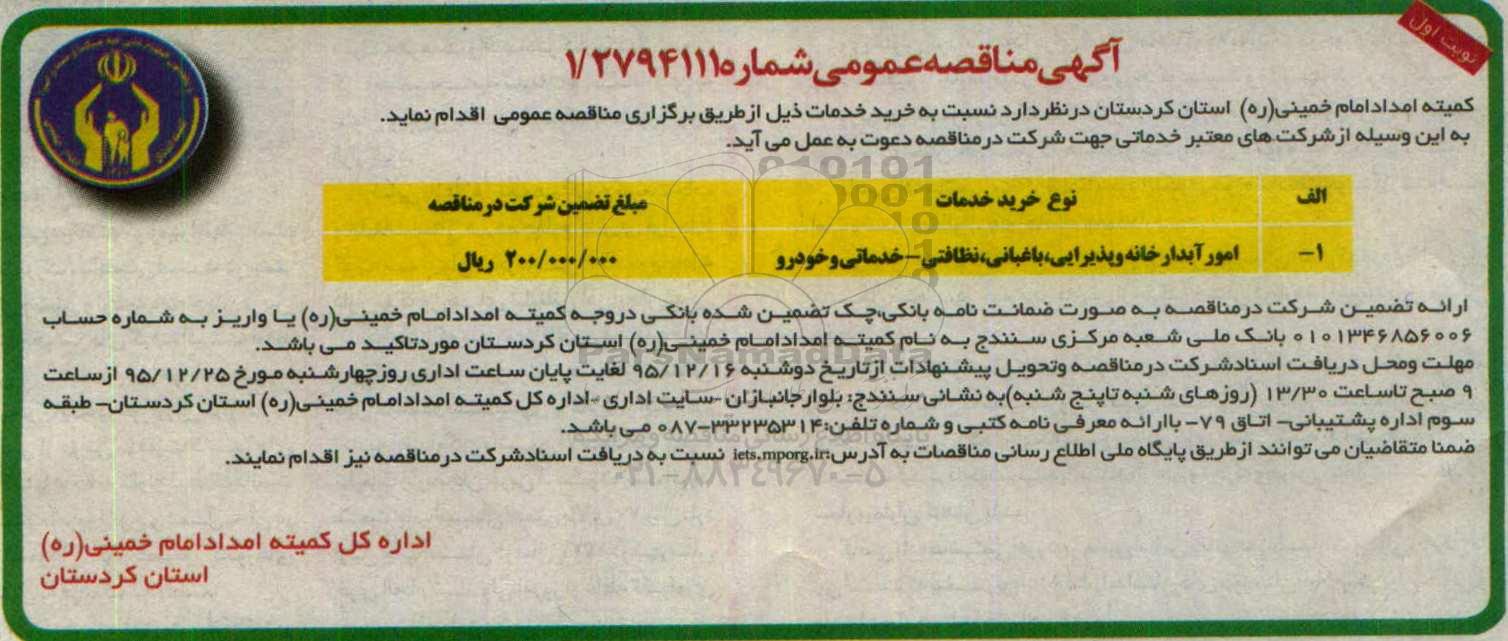 نوبت اول
آگهی مناقصه عمومی شماره ۱/۲۷۹۴۱۱۱
کمیته امداد امام خمینی(ره) استان کردستان در نظر دارد نسبت به خرید خدمات ذیل از طریق برگزاری مناقصه عمومی اقدام نماید.
به این وسیله از شرکت های معتبر خدماتی جهت شرکت در مناقصه دعوت به عمل می آید.
الف نوع خرید خدمات مبلغ تضمین شرکت در مناقصه
۱- امور آبدارخانه و پذیرایی، باغبانی، نظافتی - خدماتی و خودرو ۲۰۰/۰۰۰/۰۰۰ ریال
ارائه تضمین شرکت در مناقصه به صورت ضمانت نامه بانکی، چک تضمین شده بانکی در وجه کمیته امداد امام خمینی(ره) یا واریز به شماره حساب
۰۱۰۱۳۴۶۸۵۶۰۰۶ بانک ملی شعبه مرکزی سنندج به نام کمیته امداد امام خمینی(ره) استان کردستان مورد تاکید می باشد.
مهلت و محل دریافت اسناد شرکت در مناقصه و تحویل پیشنهادات از تاریخ دوشنبه ۹۵/۱۲/۱۶ لغایت پایان ساعت اداری روز چهارشنبه مورخ ۹۵/۱۲/۲۵ از ساعت
۹ صبح تا ساعت ۱۳/۳۰ (روزهای شنبه تا پنج شنبه) به نشانی سنندج: بلوار جانبازان - سایت اداری - اداره کل کمیته امداد امام خمینی(ره) استان کردستان - طبقه
سوم اداره پشتیبانی - اتاق ۷۹ - با ارائه معرفی نامه کتبی و شماره تلفن: ۳۳۲۳۵۳۱۴-۰۸۷ می باشد.
ضمنا متقاضیان می توانند از طریق پایگاه ملی اطلاع رسانی مناقصات به آدرس: iets.mporg.ir نسبت به دریافت اسناد شرکت در مناقصه نیز اقدام نمایند.
ParsNamadData
۰۲۱-۸۸۳۴۹۶۷۰-۵
اداره کل کمیته امداد امام خمینی(ره)
استان کردستان